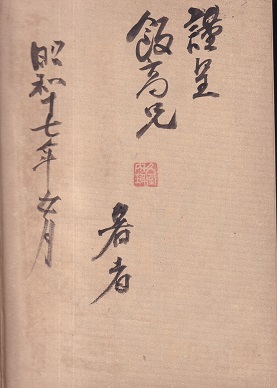 謹呈
飯高兄
著者
昭和十七年五月